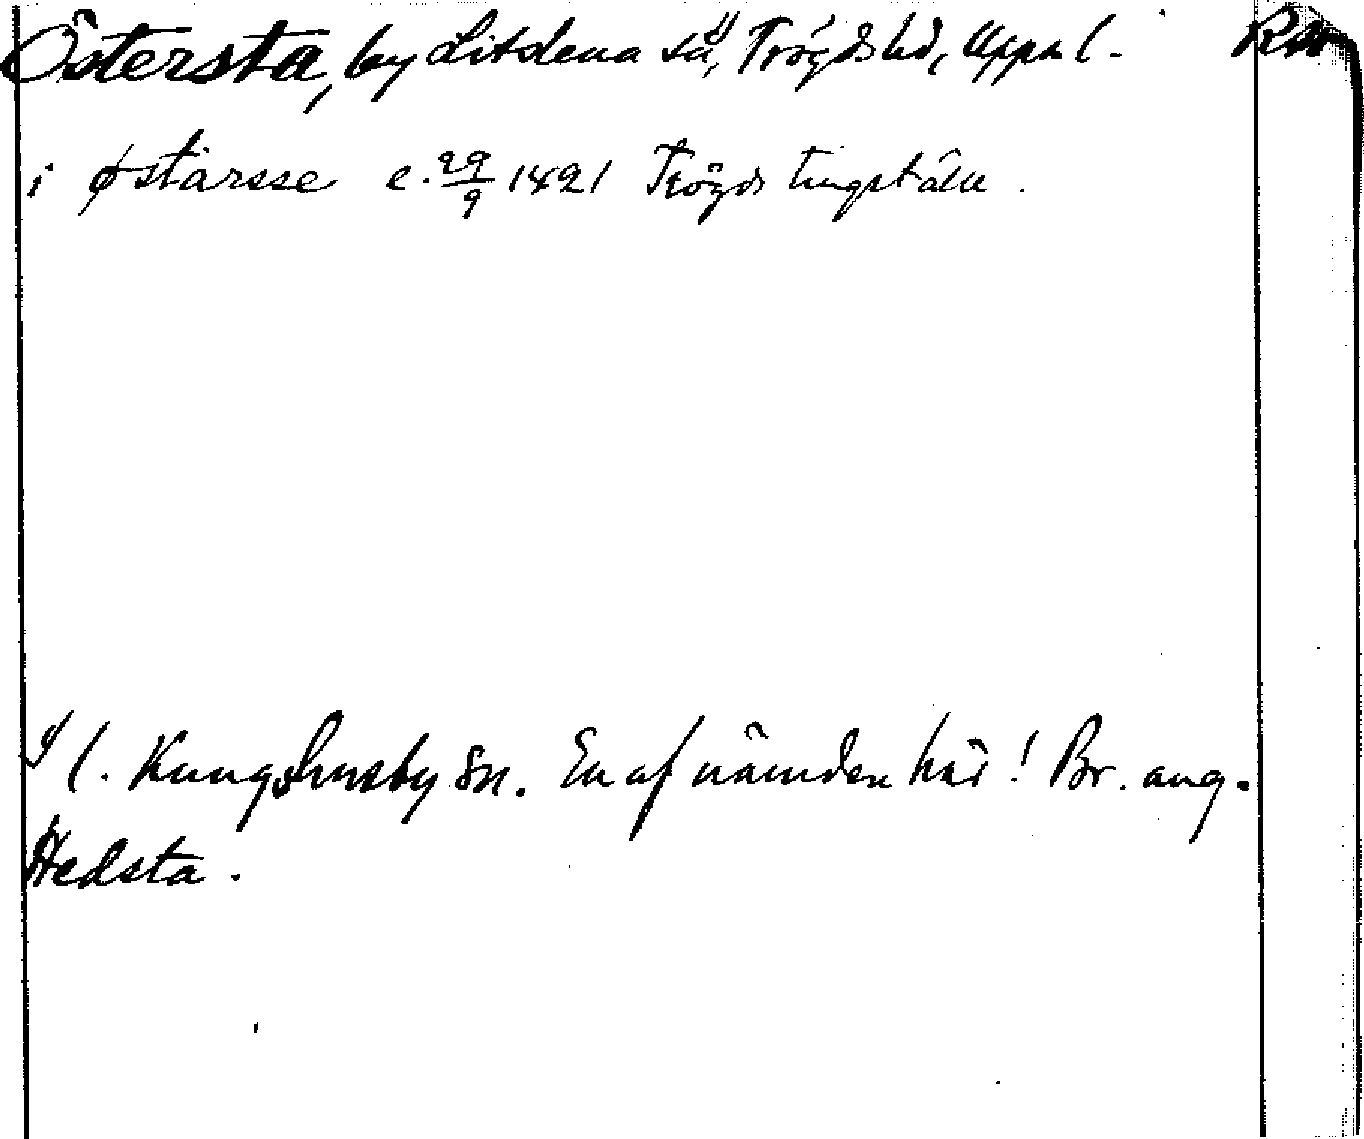 Östersta, by Litslena sn, Trögds hd, Uppsal. RA
i østarsse e. 29/9 1421 Trögds tingställe.
1). Kungshusby sn. En af nämnden här! Br. ang.
Hedsta.